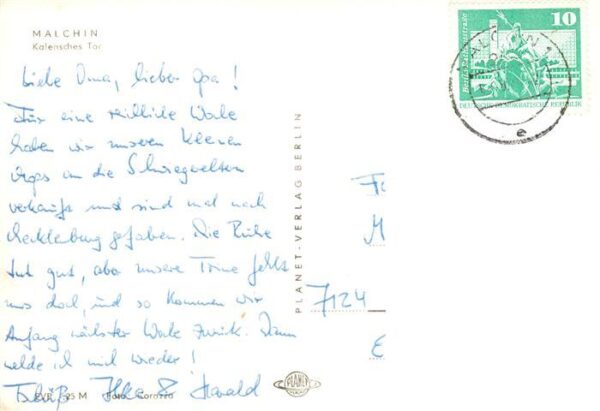 MALCHIN
Kalensches Tor
Liebe Oma, lieber Opa!
Für eine reichliche Woche
haben wir unseren kleinen
an die Schwiegereltern
verkauft und sind mal nach
Mecklenburg gefahren. Die Ruhe
tut gut, aber unsere fehlt
uns doch, und so kommen wir
Anfang nächster Woche zurück. Dann
melde ich mich wieder!
Tschüß Ilka & Harald
25 M Foto:
PLANET-VERLAG BERLIN
PLANET
10
DEUTSCHE DEMOKRATISCHE REPUBLIK
e
M
7124
E